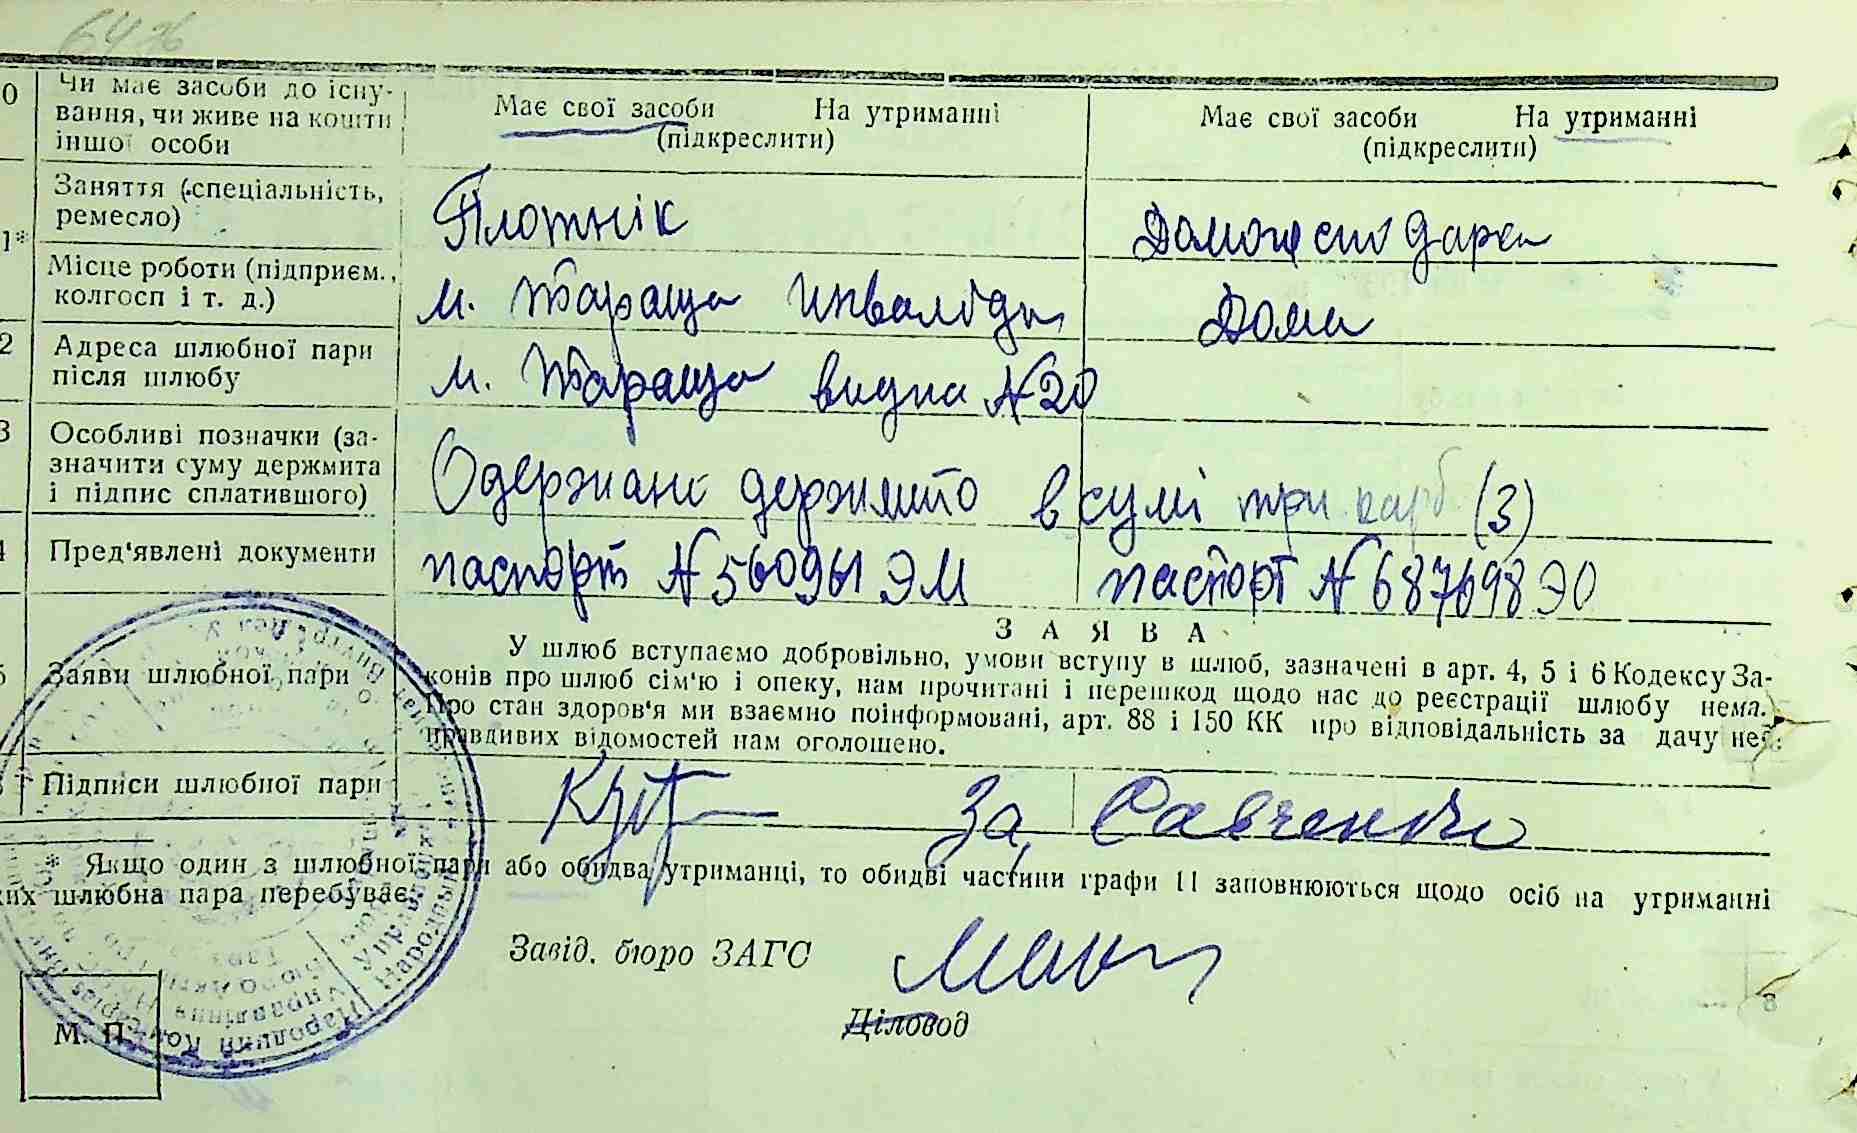 64 зв
0 Чи має засоби до існу-
вання, чи живе на кошти
іншої особи
Має свої засоби На утриманні
(підкреслити)
Має свої засоби На утриманні
(підкреслити)
Заняття (спеціальність,
ремесло)
Плотнік
Домогосподарка
1*
Місце роботи (підприєм.,
колгосп і т. д.)
м. Тараща Инвалідн
Дома
2 Адреса шлюбної пари
після шлюбу
м. Тараща видна №20
3 Особливі позначки (за-
значити суму держмита
і підпис сплатившого)
Одержано держмито в сумі три карб (3)
4 Пред'явлені документи
паспорт №560961 ЭМ
паспорт №687698 ЭО
З А Я В А
5 Заяви шлюбної пари
У шлюб вступаємо добровільно, умови вступу в шлюб, зазначені в арт. 4, 5 і 6 Кодексу За-
конів про шлюб сім'ю і опеку, нам прочитані і перешкод щодо нас до реєстрації шлюбу нема.
Про стан здоров'я ми взаємно поінформовані, арт. 88 і 150 КК про відповідальність за дачу не-
правдивих відомостей нам оголошено.
Підписи шлюбної пари
За Савченко
* Якщо один з шлюбної пари або обидва утриманці, то обидві частини графи 11 заповнюються щодо осіб на утриманні
ких шлюбна пара перебуває.
Завід. бюро ЗАГС
Діловод
М. П.
8